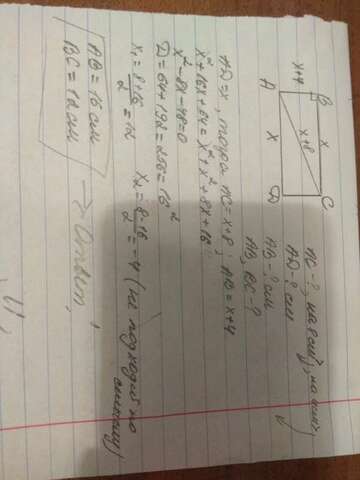 B x C
x+4 x+8
A x D
AC - ?, на 8 см >, на 4 см >,
AD - ? см
AB - ? см
AB, BC - ?
AD = x, тогда AC = x+8; AB = x+4
x²+16x+64 = x²+x²+8x+16
x²-8x-48=0
D=64+192=256=16²
x₁=8+16/2=12 x₂=8-16/2=-4 (не подходит по смыслу)
AB=16 см
BC=12 см
Ответ